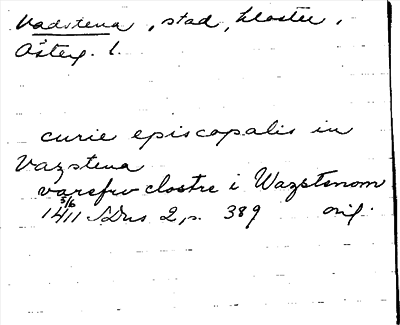 Vadstena, stad, kloster,
Österg. l.
curie episcopalis in
Vazstena
varefrv clostre i Wazstenom
5/6
1411 SDns 2, s. 389 orig.